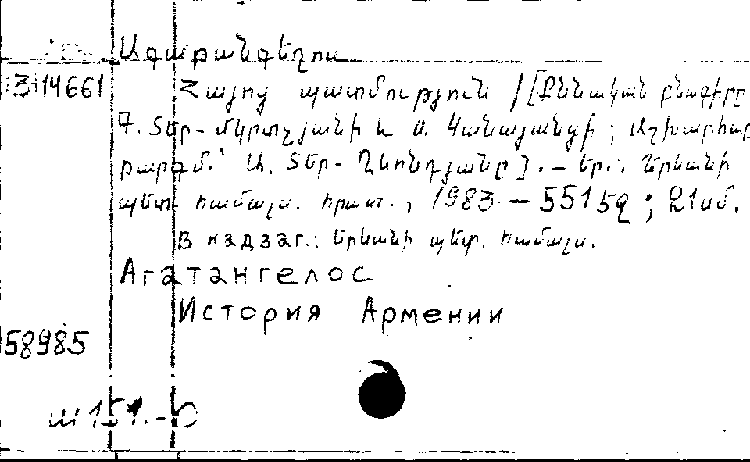 Ագաթանգեղոս
3114661 Հայոց պատմություն / [Քննական բնագիրը
Գ. Տեր-Մկրտչյանի և Ս. Կանայանցի ; Աշխարհաբար
թարգմ.՝ Ա. Տեր-Ղևոնդյանը]. – Եր.: Երևանի
պետ. համալս. հրատ., 1983 – 551 էջ ; 21սմ.
В надзаг.: Երևանի պետ. համալս.
Агатангелос
История Армении
58985